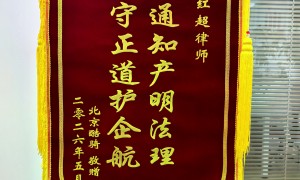 红超律师
通知产明法理
守正道护企航
北京酷骑 敬赠
二零二六年五月